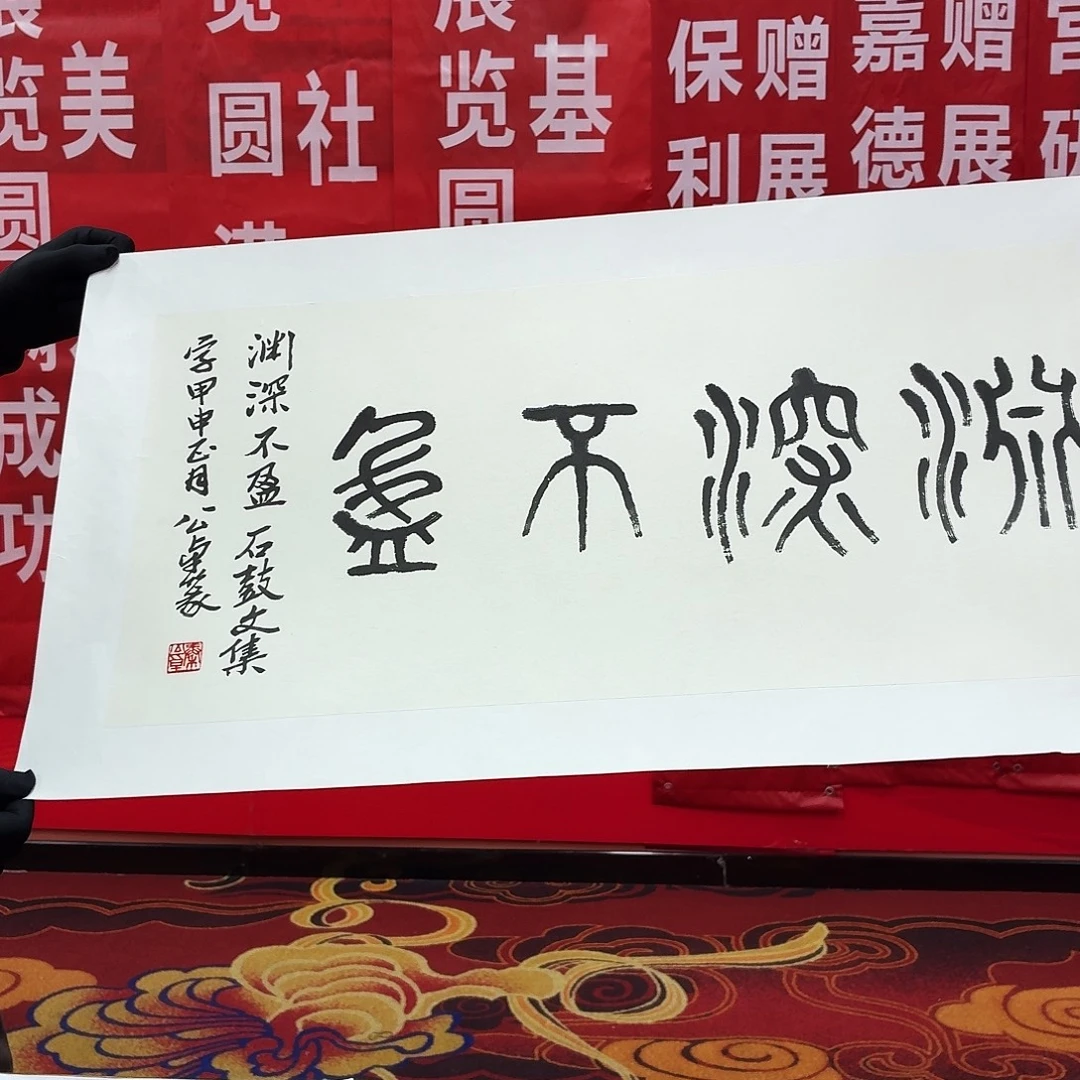 渊深不盈
渊深不盈 石鼓文集
字甲申正月 公卓篆
秦公卓
美
展览圆满成功
社
览圆满
基
展览圆
赠展
保利
赠展
嘉德
宫研